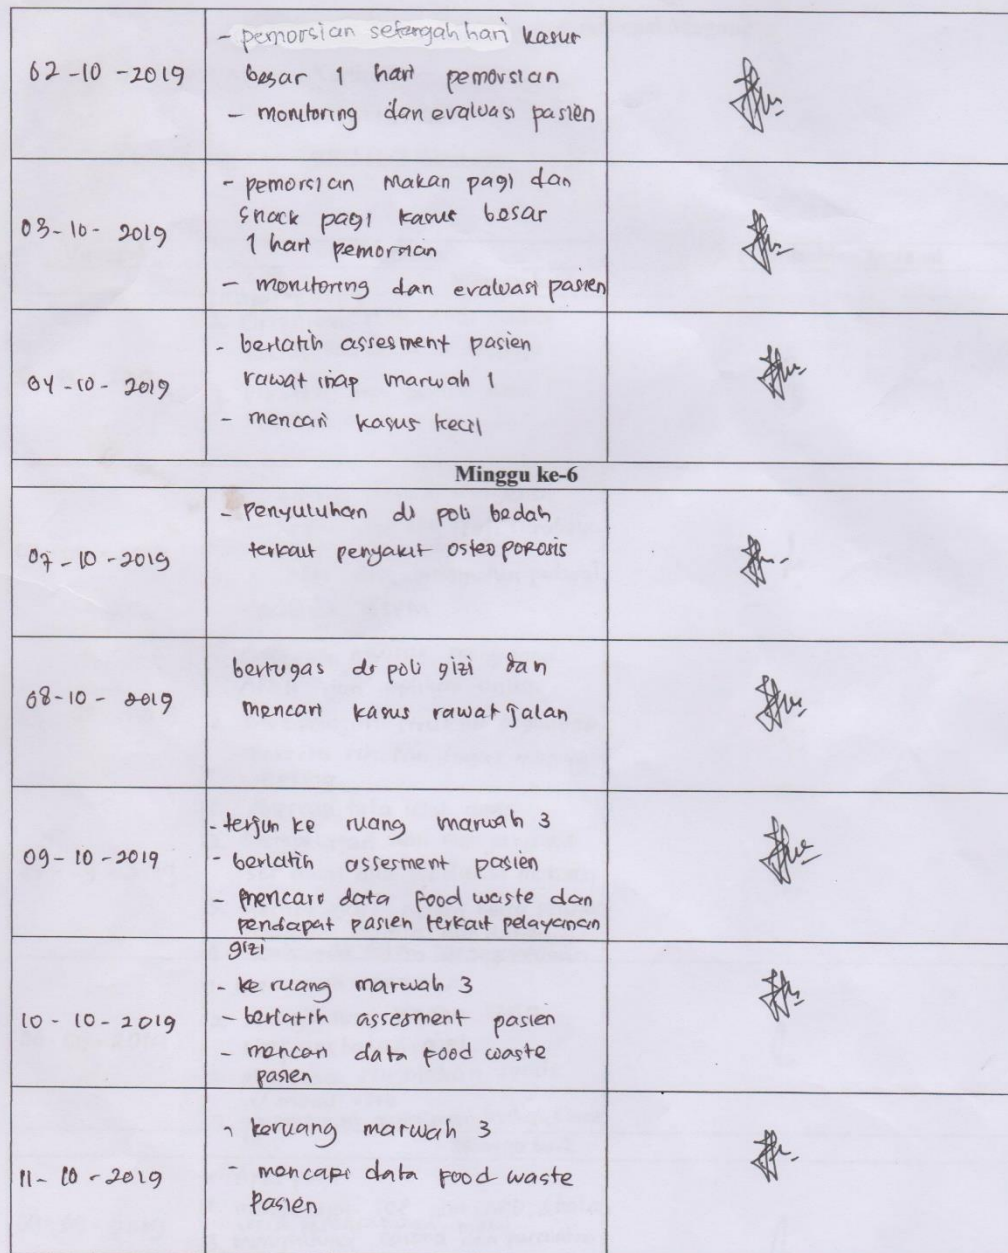 - pemorsian setengah hari kasur
02-10-2019
besar 1 hari pemorsian
- monitoring dan evaluasi pasien
- pemorsian makan pagi dan
03-10-2019
snack pagi kasur besar
1 hari pemorsian
- monitoring dan evaluasi pasien
- berlatih assesment pasien
04-10-2019
rawat inap marwah 1
- mencari kasus kecil
Minggu ke-6
- penyuluhan di poli bedah
07-10-2019
terkait penyakit osteoporosis
08-10-2019
bertugas di poli gizi dan
mencari kasus rawat jalan
- terjun ke ruang marwah 3
09-10-2019
- berlatih assesment pasien
- mencari data food waste dan
pendapat pasien terkait pelayanan
gizi
- ke ruang marwah 3
10-10-2019
- berlatih assesment pasien
- mencari data food waste
pasien
- keruang marwah 3
11-10-2019
- mencari data food waste
pasien